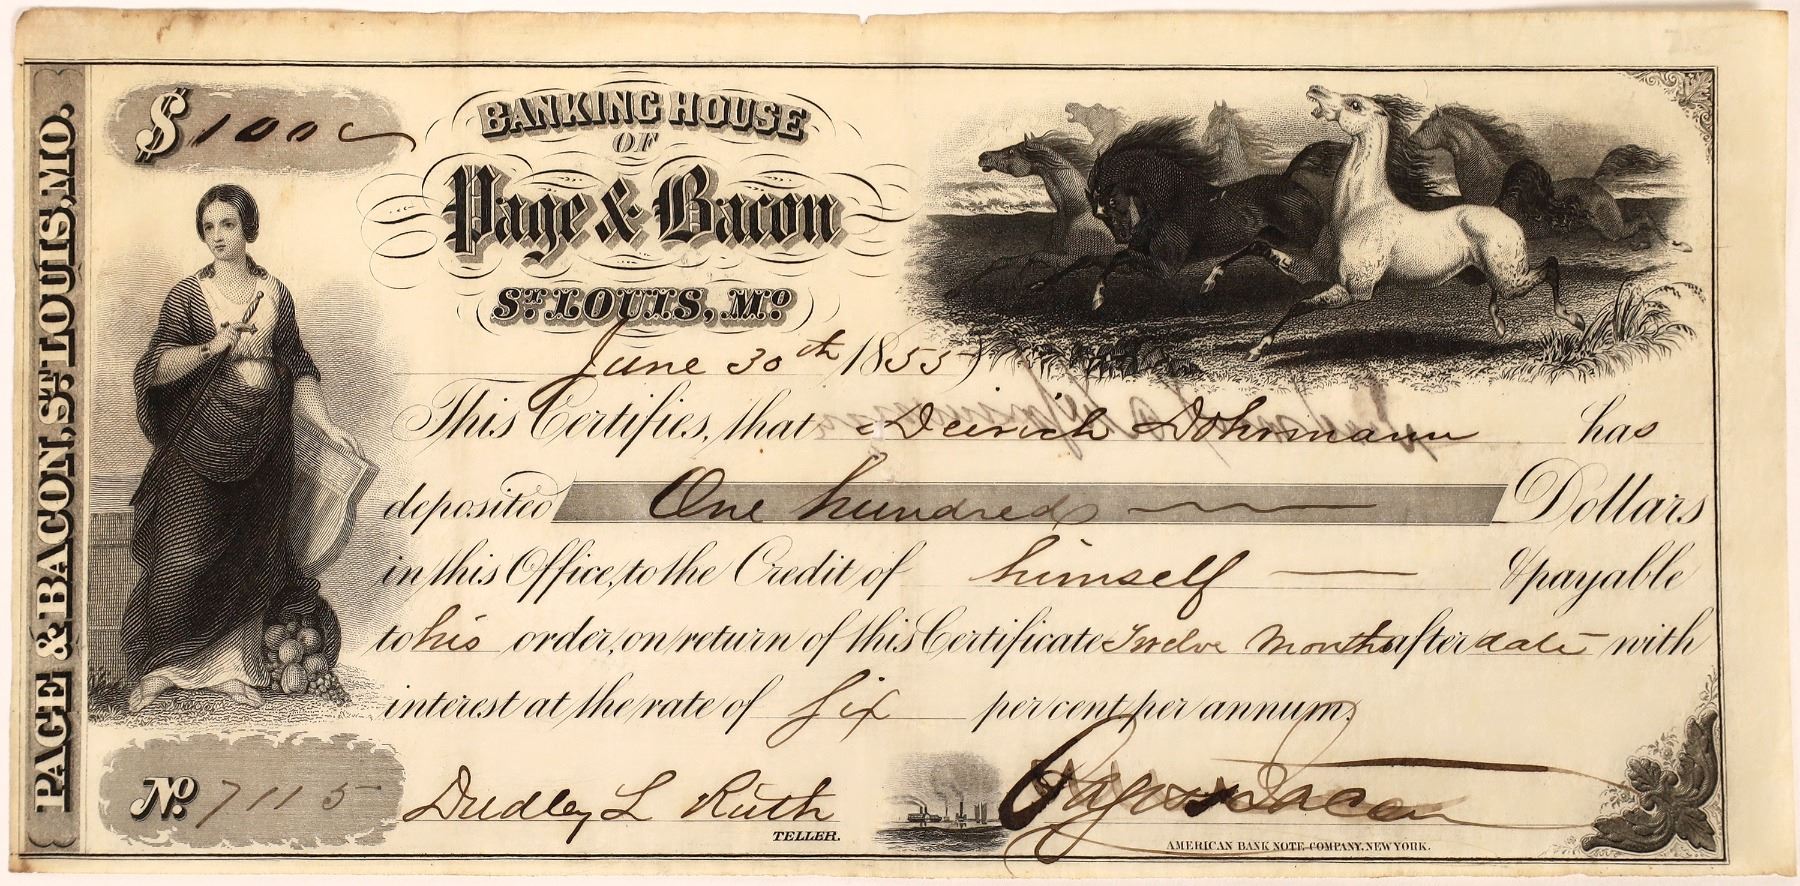 PAGE & BACON, ST. LOUIS, MO.
$ 100
BANKING HOUSE
OF
Page & Bacon
ST. LOUIS, MO.
June 30th 1855
This Certifies, that Deirich Dohrmann has
deposited One hundred Dollars
in this Office, to the Credit of himself & payable
to his order, on return of this Certificate Twelve Months after date with
interest at the rate of Six per cent per annum.
No. 7115
Dudley L Ruth
TELLER.
Page & Bacon
AMERICAN BANK NOTE COMPANY, NEW YORK.